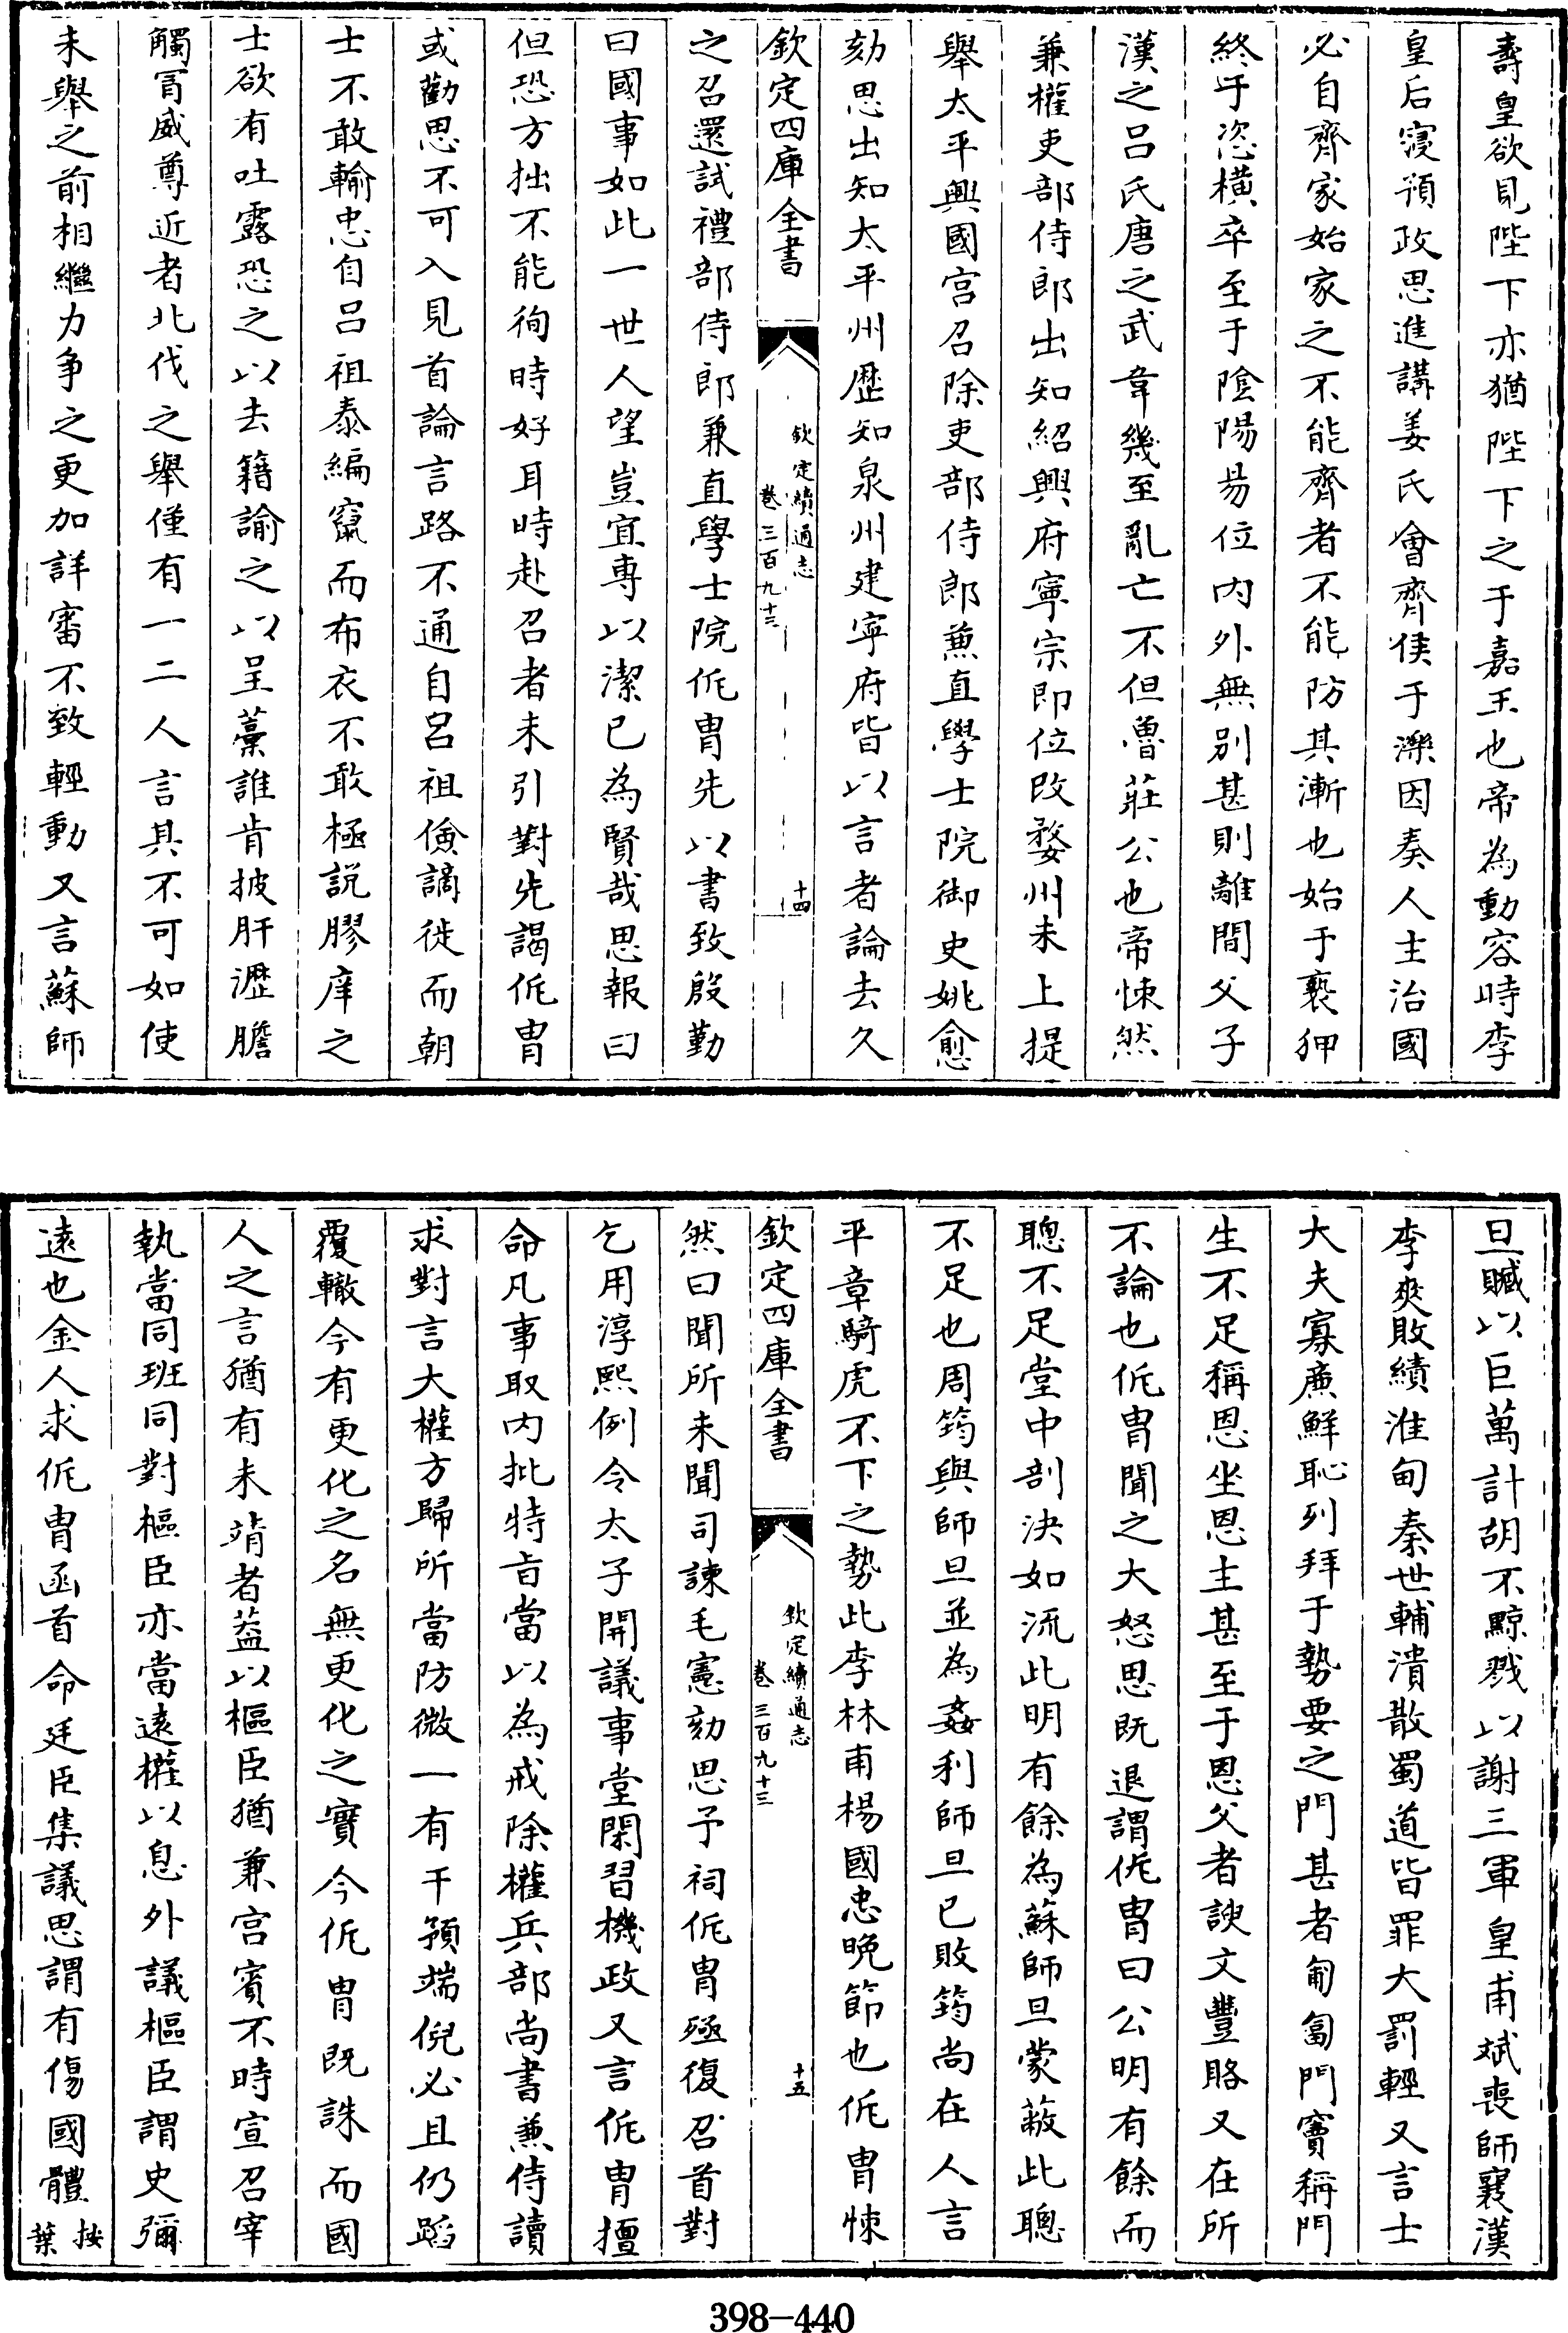 壽皇欲見陛下亦猶陛下之于嘉王也帝為動容時李
皇后寖預政思進講姜氏會齊侯于濼因奏人主治國
必自齊家始家之不能齊者不能防其漸也始于䙝狎
終于恣横卒至于陰陽易位内外無别甚則離間父子
漢之吕氏唐之武韋幾至亂亡不但魯莊公也帝悚然
兼權吏部侍郎出知紹興府寧宗即位改婺州未上提
舉太平興國宫召除吏部侍郎兼直學士院御史姚愈
劾思出知太平州歴知泉州建寧府皆以言者論去久
欽定四庫全書
欽定續通志
卷三百九十三
十四
之召還試禮部侍郎兼直學士院侂胄先以書致殷勤
曰國事如此一世人望豈宜專以潔已為賢哉思報曰
但恐方拙不能徇時好耳時赴召者未引對先謁侂胄
或勸思不可入見首論言路不通自吕祖儉謫徙而朝
士不敢輸忠自吕祖泰編竄而布衣不敢極説膠庠之
士欲有吐露恐之以去籍諭之以呈藁誰肯披肝瀝膽
觸冐威尊近者北伐之舉僅有一二人言其不可如使
未舉之前相繼力争之更加詳審不致輕動又言蘇師
旦贓以巨萬計胡不黥戮以謝三軍皇甫斌喪師襄漢
李爽敗績淮甸秦世輔潰散蜀道皆罪大罰輕又言士
大夫寡亷鮮恥列拜于勢要之門甚者匍匐門竇稱門
生不足稱恩坐恩主甚至于恩父者諛文豐賂又在所
不論也侂胄聞之大怒思既退謂侂胄曰公明有餘而
聰不足堂中剖決如流此明有餘為蘇師旦蒙蔽此聰
不足也周筠與師旦並為姦利師旦已敗筠尚在人言
平章騎虎不下之勢此李林甫楊國忠晚節也侂胄悚
欽定四庫全書
欽定續通志
卷三百九十三
十五
然曰聞所未聞司諫毛憲劾思予祠侂胄殛復召首對
乞用淳熙例令太子開議事堂閑習機政又言侂胄擅
命凡事取内批特旨當以為戒除權兵部尚書兼侍讀
求對言大權方歸所當防微一有干預端倪必且仍蹈
覆轍今有更化之名無更化之實今侂胄既誅而國
人之言猶有未靖者葢以樞臣猶兼宫賓不時宣召宰
執當同班同對樞臣亦當遠權以息外議樞臣謂史彌
遠也金人求侂胄函首命廷臣集議思謂有傷國體按
葉
398-440